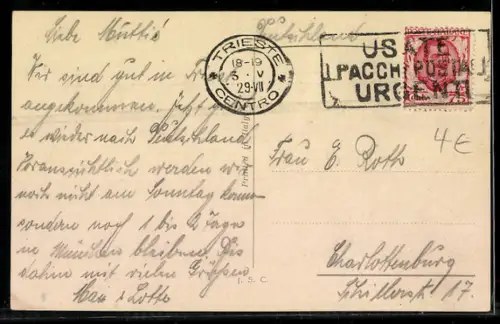 Liebe Mutti!
Deutschland
Wir sind gut in
angekommen. Jetzt geht
es wieder nach Deutschland.
Voraussichtlich werden wir
noch nicht am Sonntag kommen
sondern noch 1 bis 2 Tage
in München bleiben. Bis
dahin mit vielen Grüßen
Max & Lotte
TRIESTE
18-19
5 · V
29·VII
CENTRO
USATE
PACCHI POSTALI
URGENTI
75
4€
Printed in Italy
I. S. C.
Frau E. Roth
Charlottenburg
Schillerstr. 17.